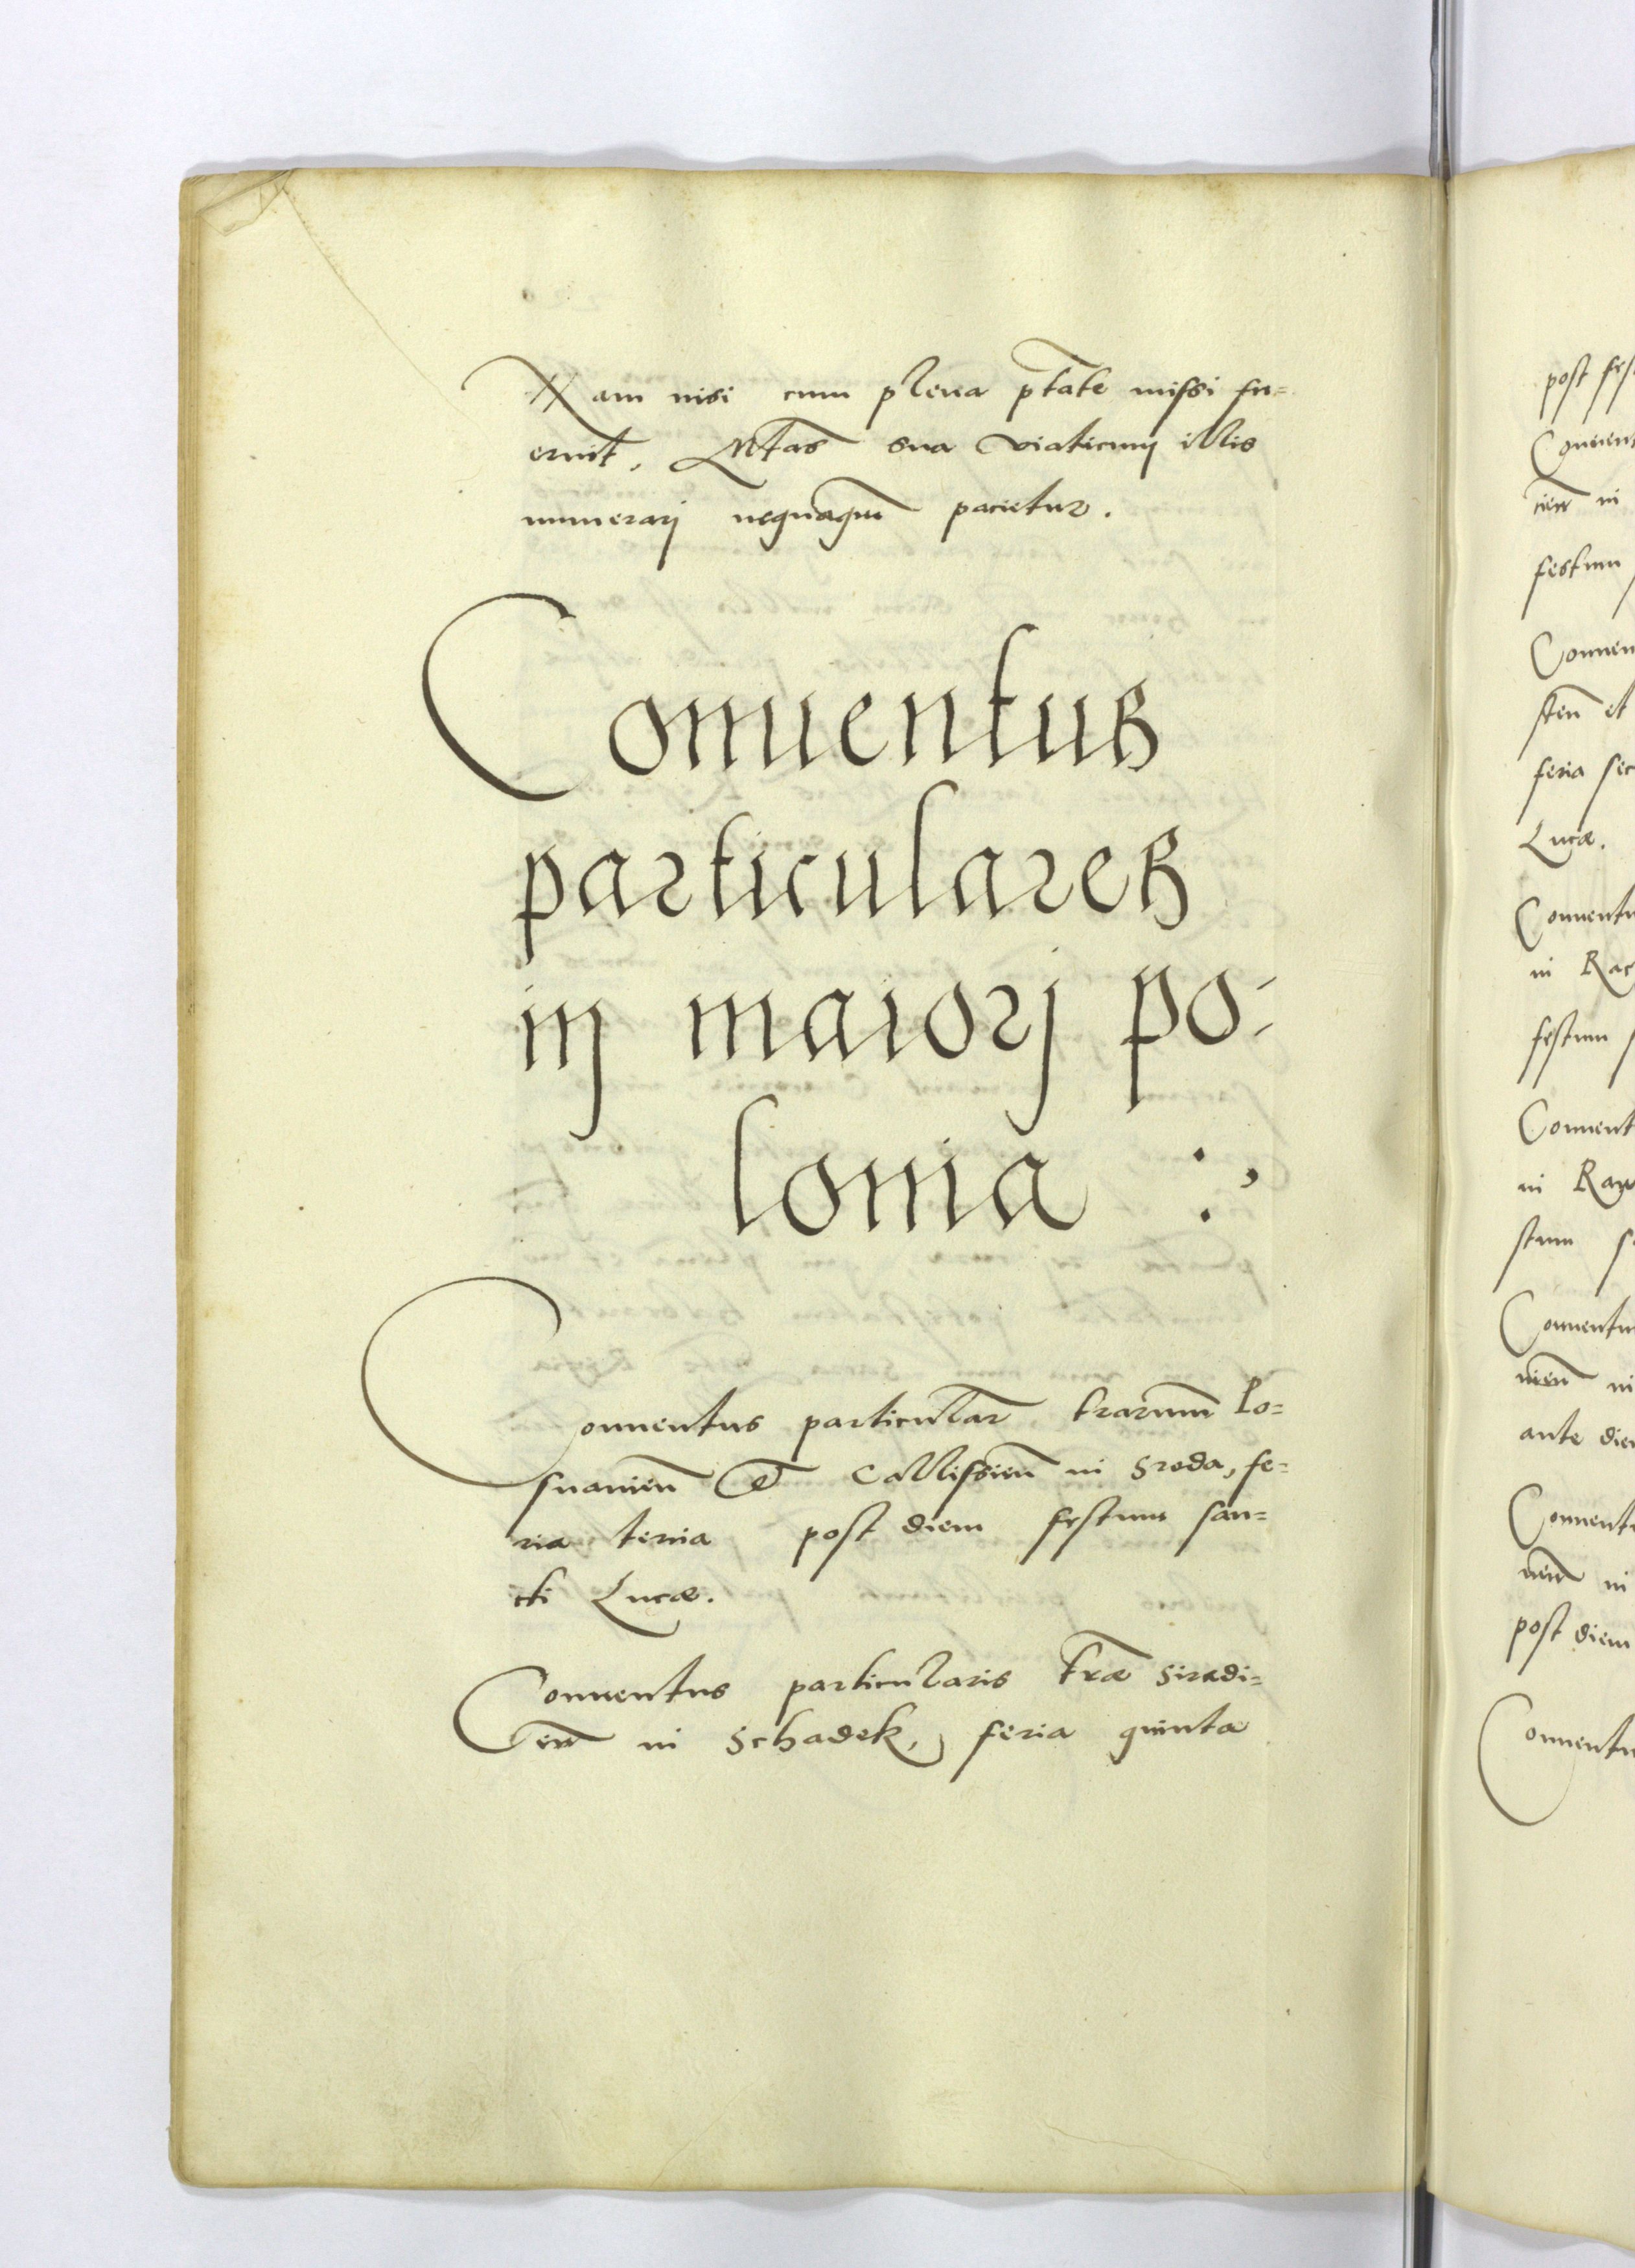 Nam nisi cum plena ptate missi fu=
erint, Mtas sua viaticum illis
numerarj nequaqm pacietur.
Conuentus
particulares
in maiorj po=
lonia :,
Conuentus particular trarum Po=
snanien et Callissien in Sroda, fe=
ria tertia post diem festum san=
cti Lucæ.
Conuentus particularis træ Siradi=
en in Schadek, feria quinta
post fes
Conuent
cien in
festum
Conuen
sten et
feria sec
Lucæ.
Conuentu
in Rac
festum
Conuent
in Raw
stum
Conuentu
nien in
ante die
Conuent
nien in
post diem
Conuentu